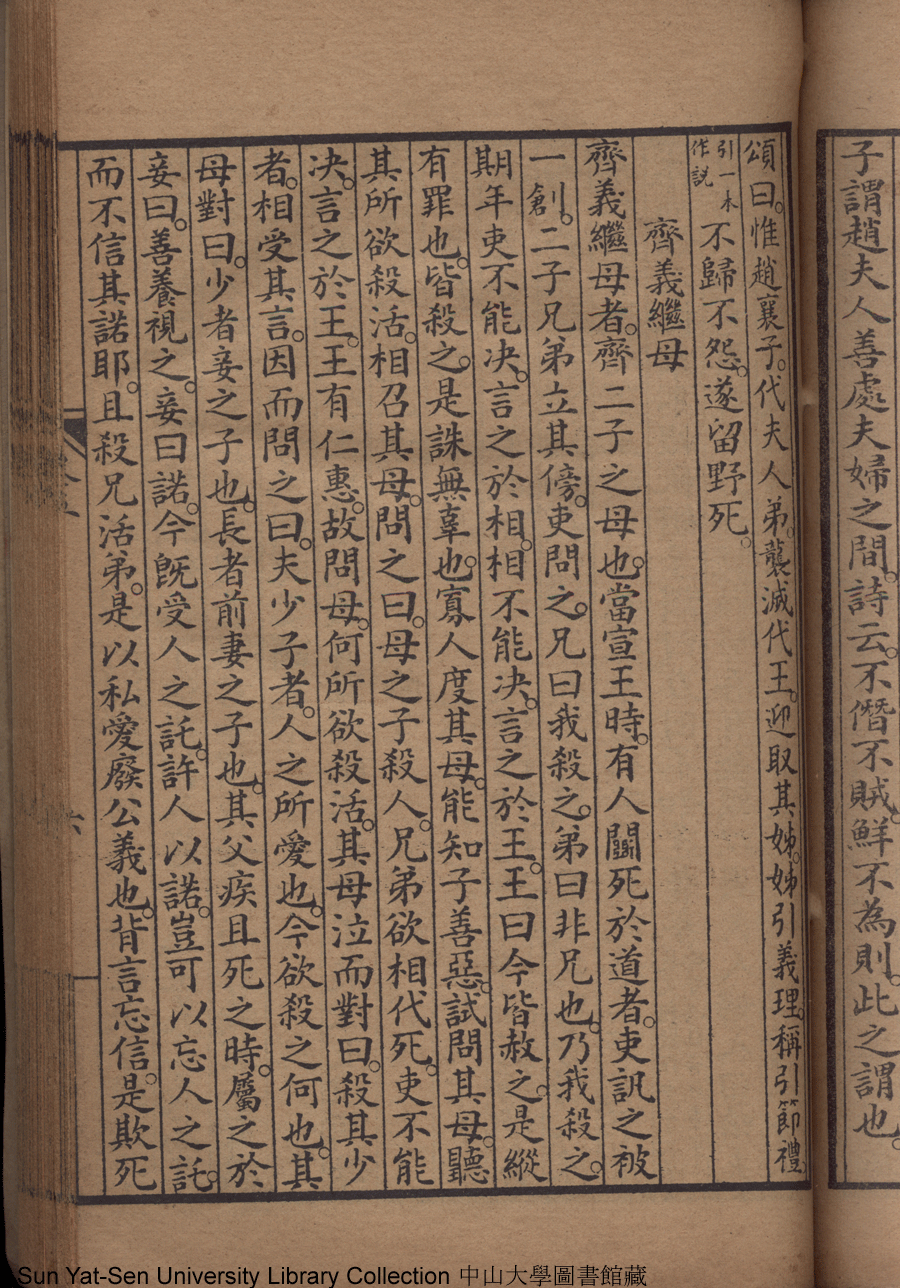 子謂趙夫人善處夫婦之間。詩云。不僭不賊。鮮不為則。此之謂也。
頌曰。惟趙襄子。代夫人弟。襲滅代王。迎取其姊。姊引義理。稱引節禮。
引一本作説不歸不怨。遂留野死。
齊義繼母
齊義繼母者。齊二子之母也。當宣王時。有人鬬死於道者。吏訊之被
一創。二子兄弟立其傍。吏問之。兄曰我殺之。弟曰非兄也。乃我殺之。
期年吏不能决。言之於相。相不能决。言之於王。王曰今皆赦之。是縱
有罪也。皆殺之。是誅無辜也。寡人度其母。能知子善惡。試問其母。聽
其所欲殺活。相召其母。問之曰。母之子殺人。兄弟欲相代死。吏不能
决。言之於王。王有仁惠。故問母。何所欲殺活。其母泣而對曰。殺其少
者。相受其言。因而問之曰。夫少子者。人之所愛也。今欲殺之何也。其
母對曰。少者妾之子也。長者前妻之子也。其父疾且死之時。屬之於
妾曰。善養視之。妾曰諾。今既受人之託。許人以諾。豈可以忘人之託。
而不信其諾耶。且殺兄活弟。是以私愛廢公義也。背言忘信。是欺死
六
Sun Yat-Sen University Library Collection 中山大學圖書館藏